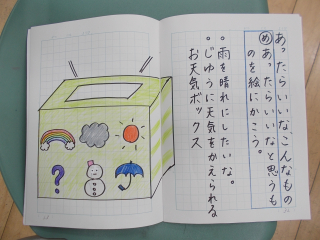 あったらいいなこんなもの
めあったらいいなと思うも
のを絵にかこう。
・雨を晴れにしたいな。
・じゆうに天気をかえられる
お天気ボックス
?